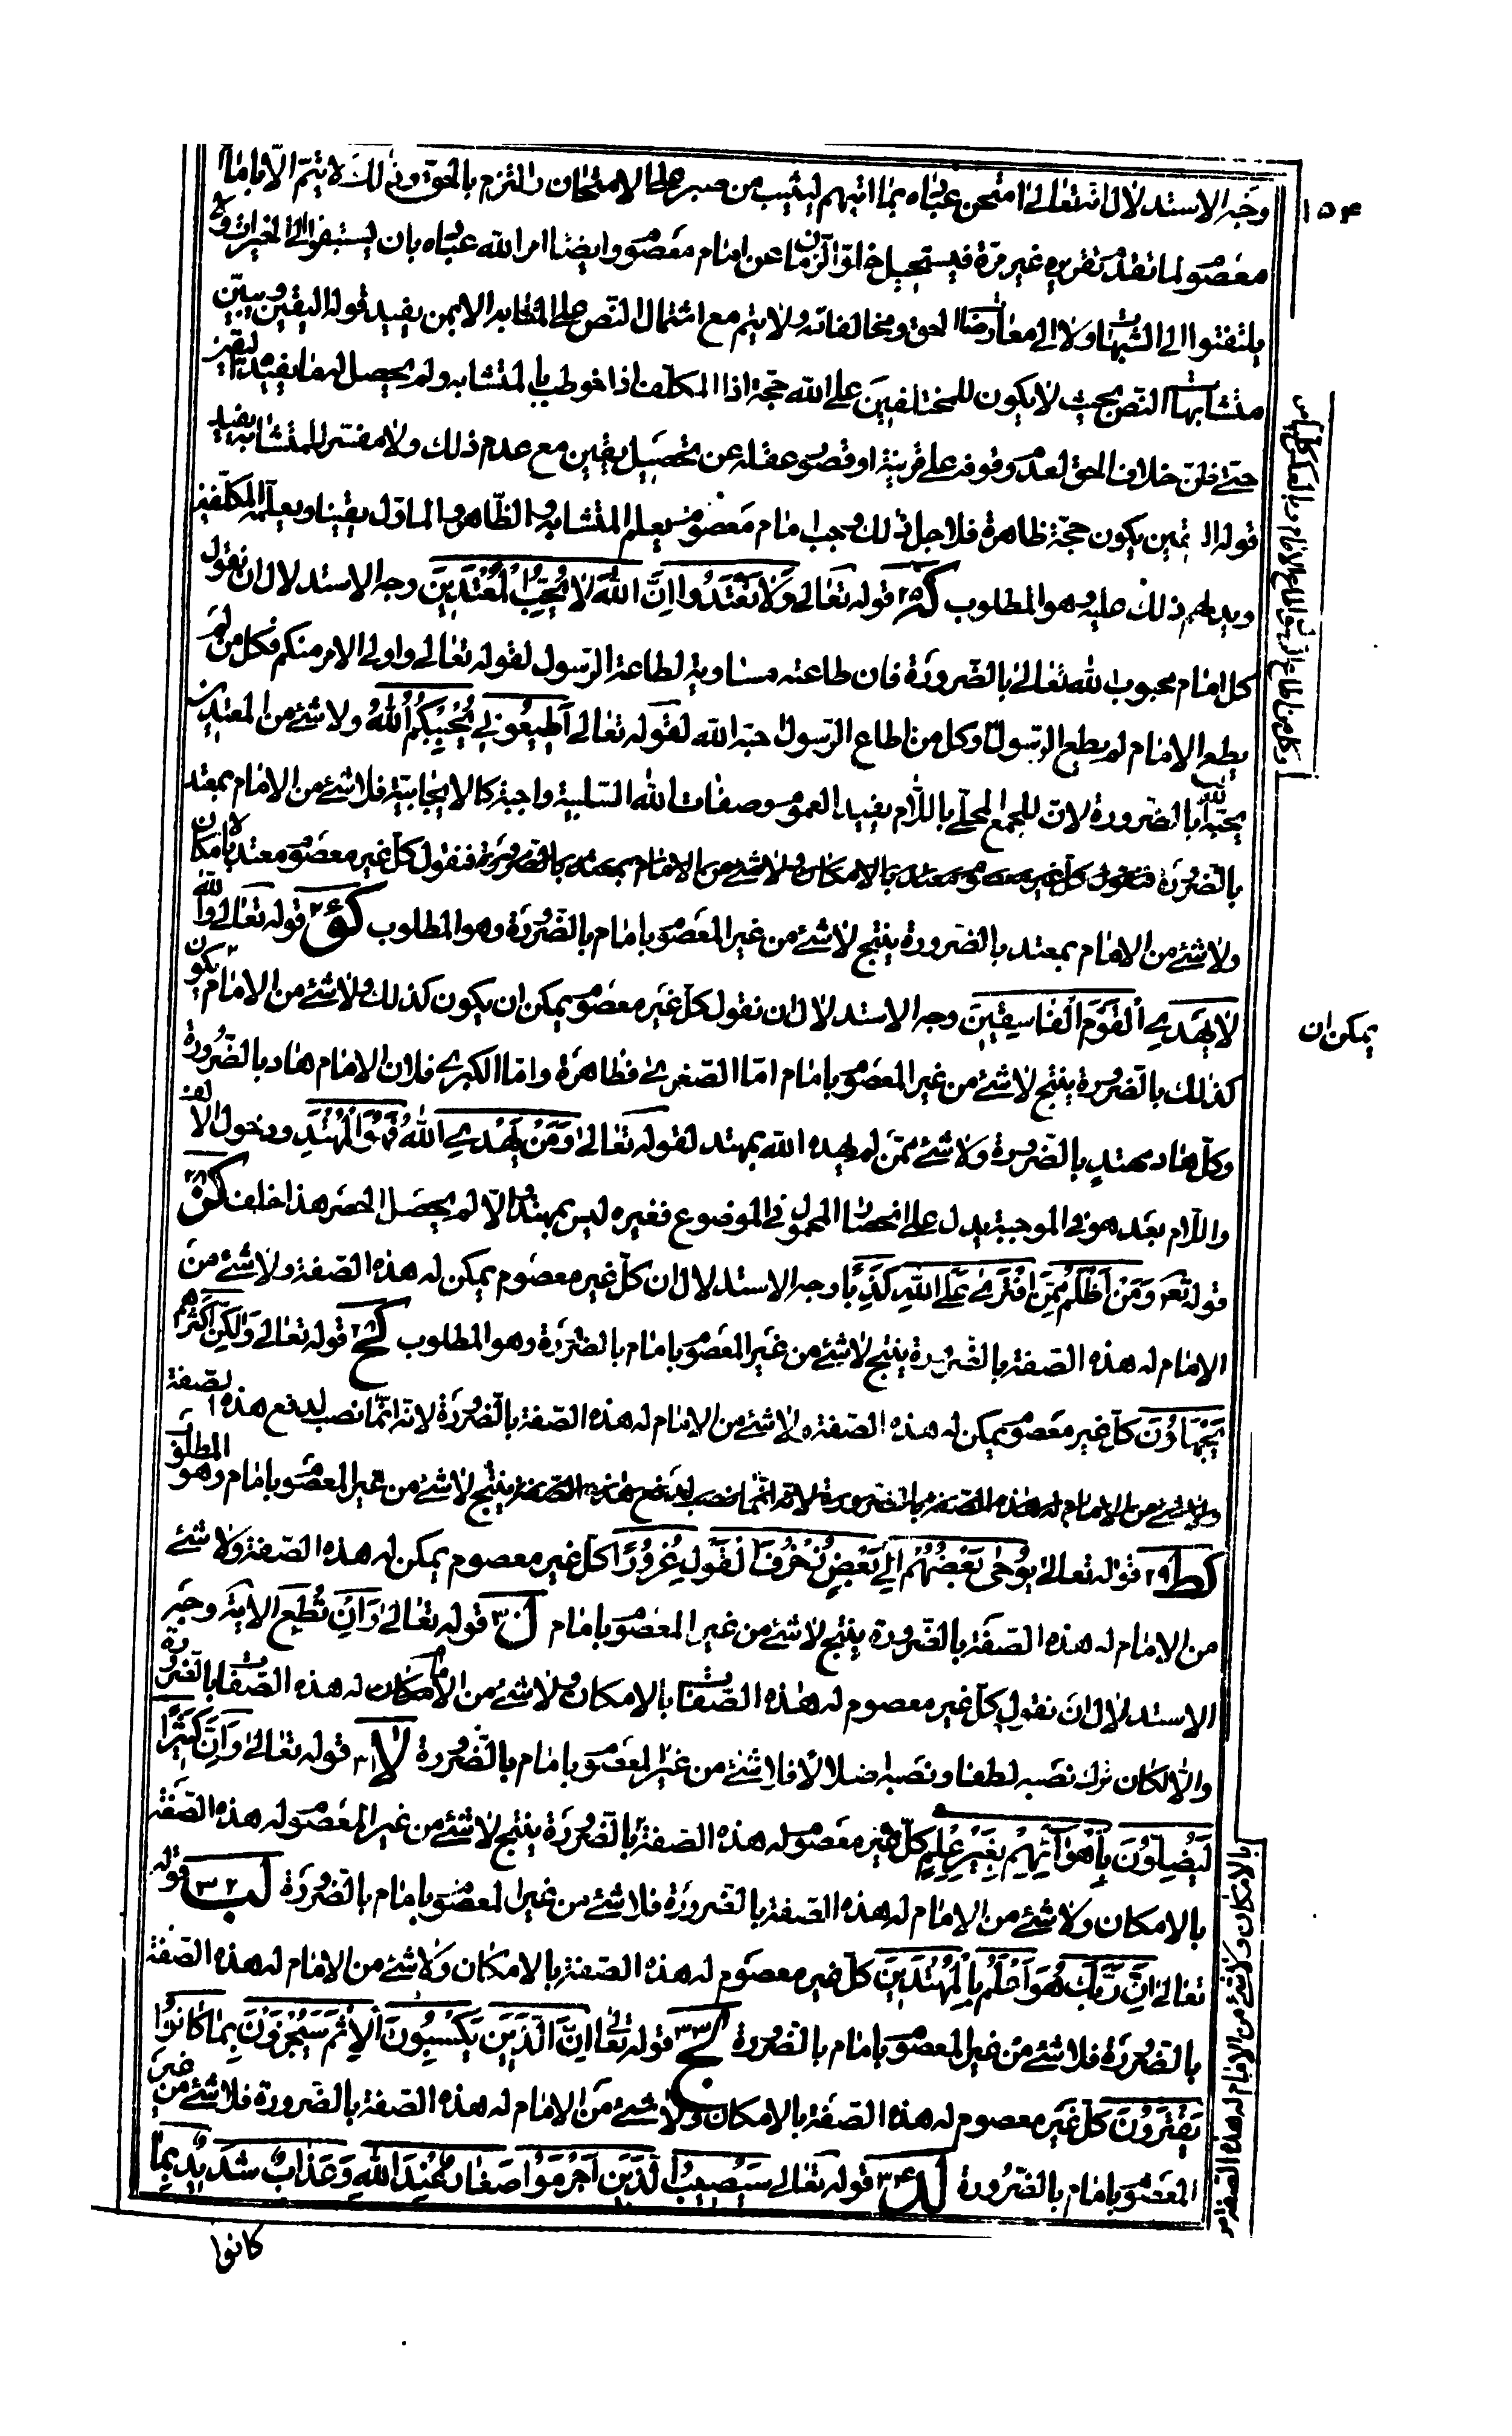 ١٥٤
وجه الاستدلال انه تعالى امتحن عباده بما اتيهم ليثيب من صبر على الامتحان والتزم بالحق وذلك لا يتم الا بامام
معصوم لما تقدم تقريره غير مرة فيستحيل خلو الزمان عن امام معصوم وايضا امر الله عباده بان يستبقوا الى الخيرات ولا
يلتفتوا الى الشبهات ولا الى معارضات الحق ومخالفاته ولا يتم مع اشتمال النص على المتشابه الا بمن يفيد قوله اليقين ويبين
متشابهات النص بحيث لا يكون للمختلفين على الله حجة اذا المكلف اذا خوطب بالمتشابه ولم يحصل له ما يفيده اليقين
حتى ظن خلاف الحق لعدم وقوفه على قرينة او قصور عقله عن تحصيل يقين مع عدم ذلك ولا مفسر للمتشابه يفيد
قوله اليقين يكون حجة ظاهرة فلاجل ذلك وجب امام معصوم يعلم المتشابه والظاهر والماول يقينا ويعلمه المكلفين
ويدلهم ذلك عليه وهو المطلوب كه ٢٥ قوله تعالى وَلَا تَعْتَدُوا اِنَّ اللّٰهَ لَا يُحِبُّ الْمُعْتَدِينَ وجه الاستدلال ان نقول
كل امام محبوب لله تعالى بالضرورة فان طاعته مساوية لطاعة الرسول لقوله تعالى واولى الامر منكم فكل من لم
يطع الامام لم يطع الرسول وكل من اطاع الرسول احبه الله لقوله تعالى اَطِيعُونِي يُحْبِبْكُمُ اللّٰهُ ولا شئ من المعتدين
يحبه الله بالضرورة لان الجمع المحلى باللام يفيد العموم وصفات الله السلبية واجبة كالايجابية فلا شئ من الامام بمعتد
بالضرورة فنقول كل غير معصوم معتد بالامكان ولا شئ من الامام بمعتد بالضرورة فنقول كل غير معصوم معتد بالامكان
ولا شئ من الامام بمعتد بالضرورة ينتج لا شئ من غير المعصوم بامام بالضرورة وهو المطلوب كو ٢٦ قوله تعالى والله
لَا يَهْدِي الْقَوْمَ الْفَاسِقِينَ وجه الاستدلال ان نقول كل غير معصوم يمكن ان يكون كذلك ولا شئ من الامام يكون
يمكن ان
كذلك بالضرورة ينتج لا شئ من غير المعصوم بامام اما الصغرى فظاهرة واما الكبرى فلان الامام هاد بالضرورة
وكل هاد مهتد بالضرورة ولا شئ ممن لم يهده الله بمهتد لقوله تعالى وَمَنْ يَهْدِي اللّٰهُ فَهُوَ الْمُهْتَدِ ودخول الالف
واللام بعد هو في الموجبة يدل على انحصار المحمول في الموضوع فغيره ليس بمهتد والا لم يحصل الحصر هذا خلف كز ٢٧
قوله تعر وَمَنْ اَظْلَمُ مِمَّنِ افْتَرَى عَلَى اللّٰهِ كَذِبًا وجه الاستدلال ان كل غير معصوم يمكن له هذه الصفة ولا شئ من
الامام له هذه الصفة بالضرورة ينتج لا شئ من غير المعصوم بامام بالضرورة وهو المطلوب كح ٢٨ قوله تعالى وَلٰكِنَّ اَكْثَرَهُمْ
يَجْهَلُونَ كل غير معصوم يمكن له هذه الصفة ولا شئ من الامام له هذه الصفة بالضرورة لانه انما نصب لدفع هذه الصفة
ولا شئ من الامام له هذه الصفة بالضرورة لانه انما نصب لدفع هذه الصفة ينتج لا شئ من غير المعصوم بامام وهو المطلوب
كط ٢٩ قوله تعالى يُوحٰى بَعْضُهُمْ اِلٰى بَعْضٍ زُخْرُفَ الْقَوْلِ غُرُورًا كل غير معصوم يمكن له هذه الصفة ولا شئ
من الامام له هذه الصفة بالضرورة ينتج لا شئ من غير المعصوم بامام ل ٣٠ قوله تعالى وَاِنْ تُطِعْ الاية وجه
الاستدلال ان نقول كل غير معصوم له هذه الصفات بالامكان ولا شئ من الامام له هذه الصفات بالضرورة
والا لكان ترك نصبه لطفا ونصبه اضلالا فلا شئ من غير المعصوم بامام بالضرورة لا ٣١ قوله تعالى وَاِنَّ كَثِيرًا
لَيُضِلُّونَ بِاَهْوَائِهِمْ بِغَيْرِ عِلْمٍ كل غير معصوم له هذه الصفة بالضرورة ينتج لا شئ من غير المعصوم له هذه الصفة
بالامكان ولا شئ من الامام له هذه الصفة بالضرورة فلا شئ من غير المعصوم بامام بالضرورة لب ٣٢ قوله
تعالى اِنَّ رَبَّكَ هُوَ اَعْلَمُ بِالْمُهْتَدِينَ كل غير معصوم له هذه الصفة بالامكان ولا شئ من الامام له هذه الصفة
بالضرورة فلا شئ من غير المعصوم بامام بالضرورة لج ٣٣ قوله تعالى اِنَّ الَّذِينَ يَكْسِبُونَ الْاِثْمَ سَيُجْزَوْنَ بِمَا كَانُوا
يَقْتَرِفُونَ كل غير معصوم له هذه الصفة بالامكان ولا شئ من الامام له هذه الصفة بالضرورة فلا شئ من غير
المعصوم بامام بالضرورة لد ٣٤ قوله تعالى سَيُصِيبُ الَّذِينَ اَجْرَمُوا صَغَارٌ عِنْدَ اللّٰهِ وَعَذَابٌ شَدِيدٌ بِمَا
كانوا
بالامكان ولا شئ من الامام له هذه الصفة